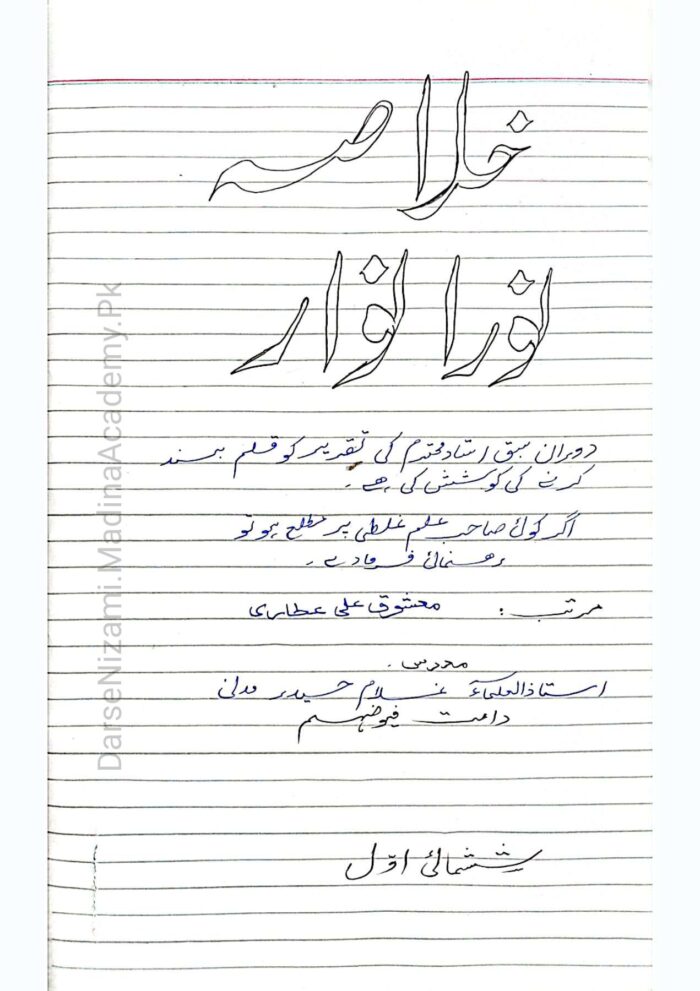 خلاصہ
نورا نوار
دوران سبق استاد محترم کی تقدیر کو قسلم بسند
کرنے کی کوشش کی ہے ۔
اگر کوئی صاحب علم غلطی پر مطلع ہو تو
رہنمائی فرمادے ۔
مرتب : معشوق علی عطاری
مدرس ۔
استاذالعلماء غلام حیدر مدنی
دامت فیوضہم
ششمائی اوّل
DarseNizami.MadinaAcademy.Pk